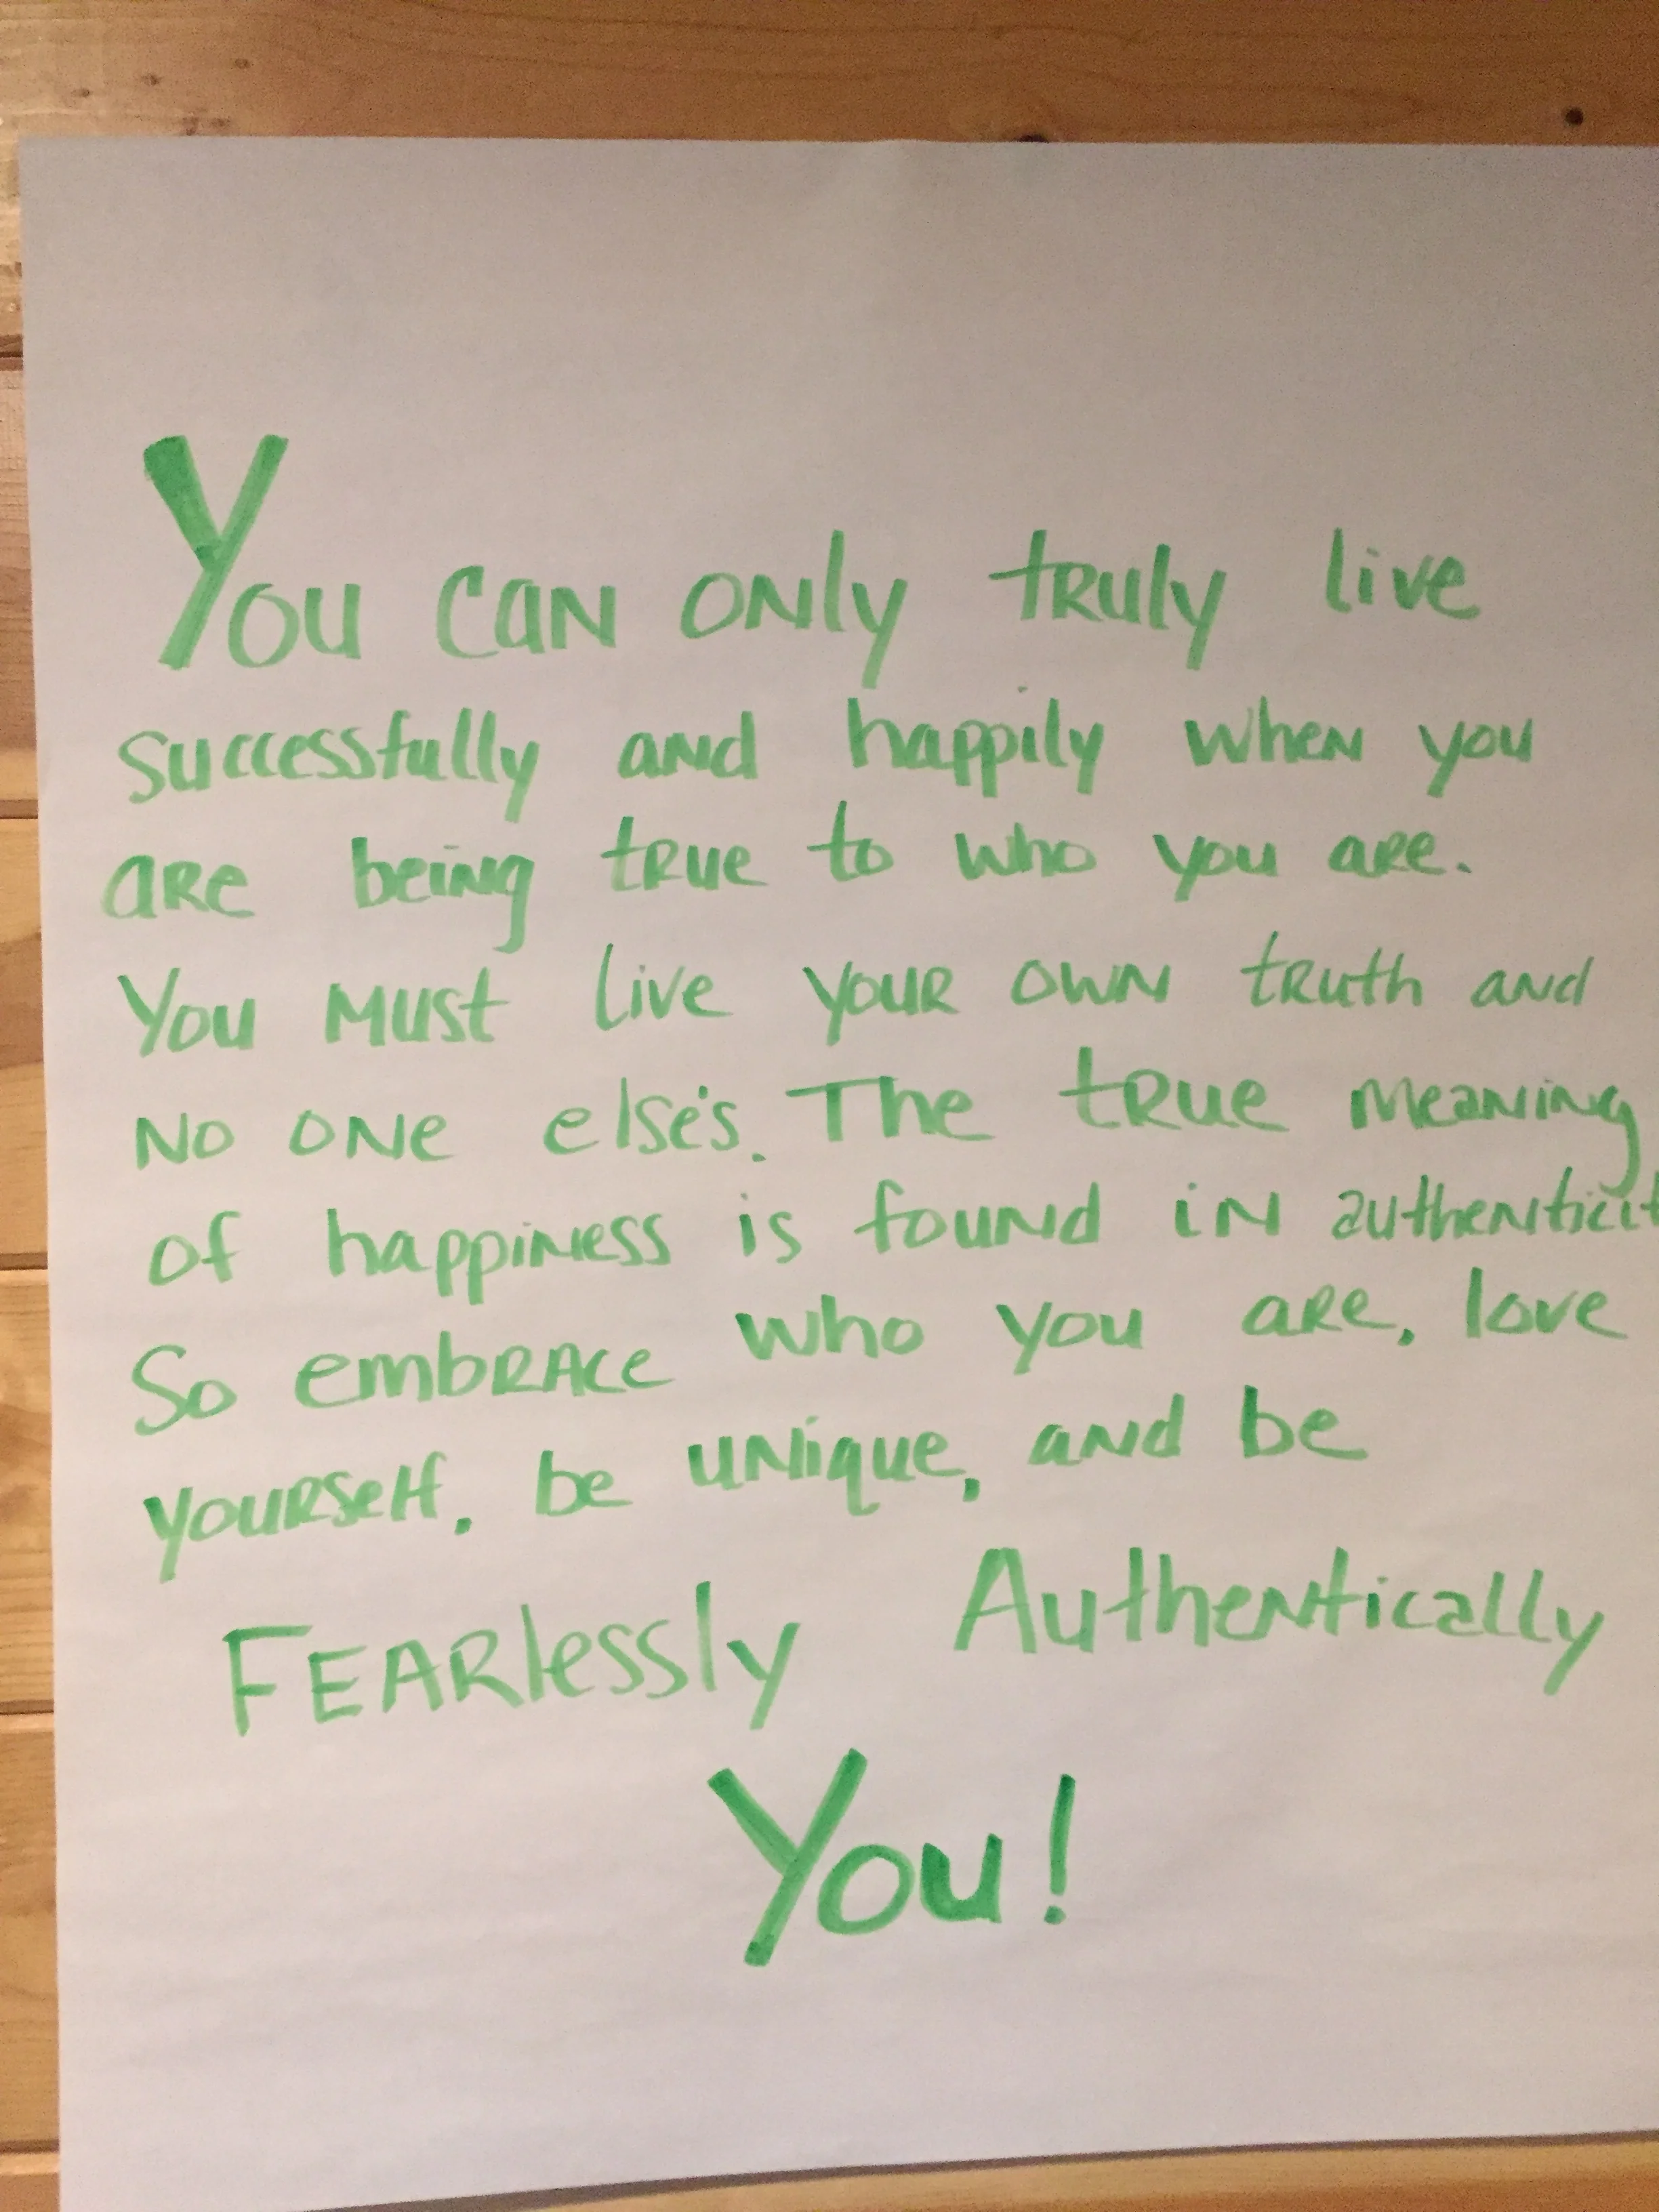 You can only truly live
successfully and happily when you
are being true to who you are.
You must live your own truth and
no one else's. The true meaning
of happiness is found in authenticit
So embrace who you are, love
yourself, be unique, and be
Fearlessly Authentically
You!